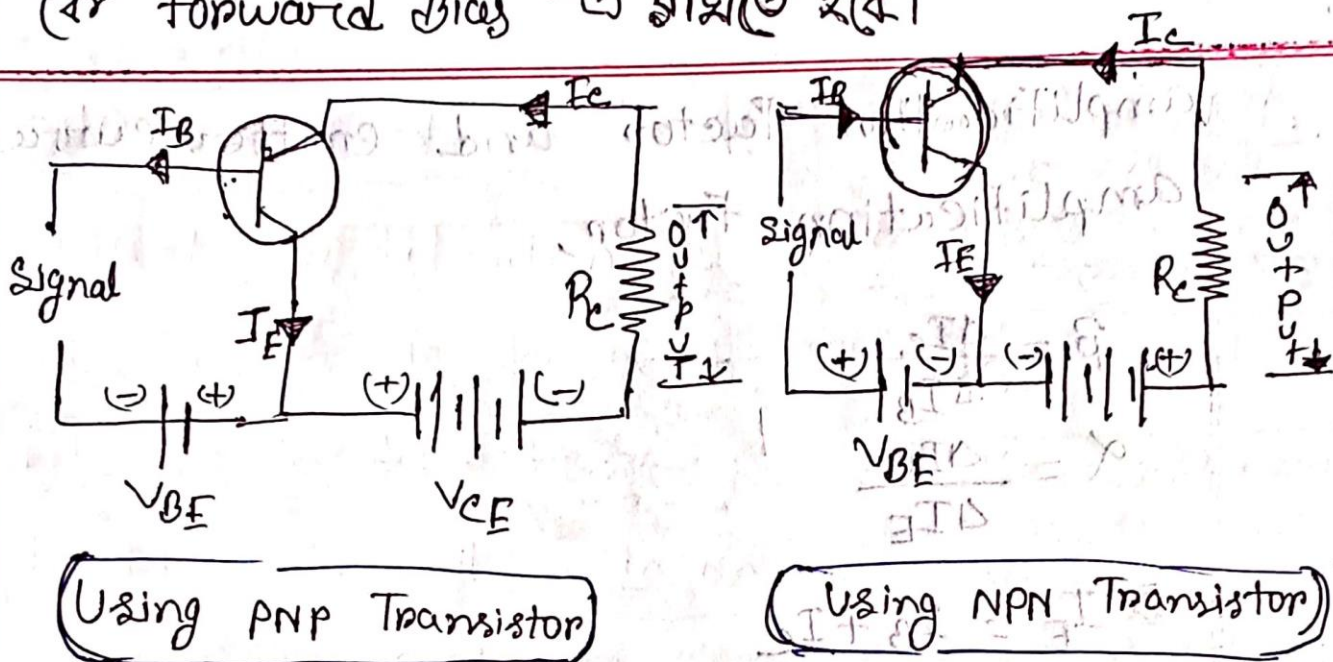 forward Bias এ রাখতে হবে।
I_B
I_C
Signal
I_E
R_C
OUTPUT
(-) (+)
(+) (-)
V_BE
V_CE
Using PNP Transistor
I_B
I_C
Signal
I_E
R_C
Output
(+) (-)
(-) (+)
V_BE
Using NPN Transistor